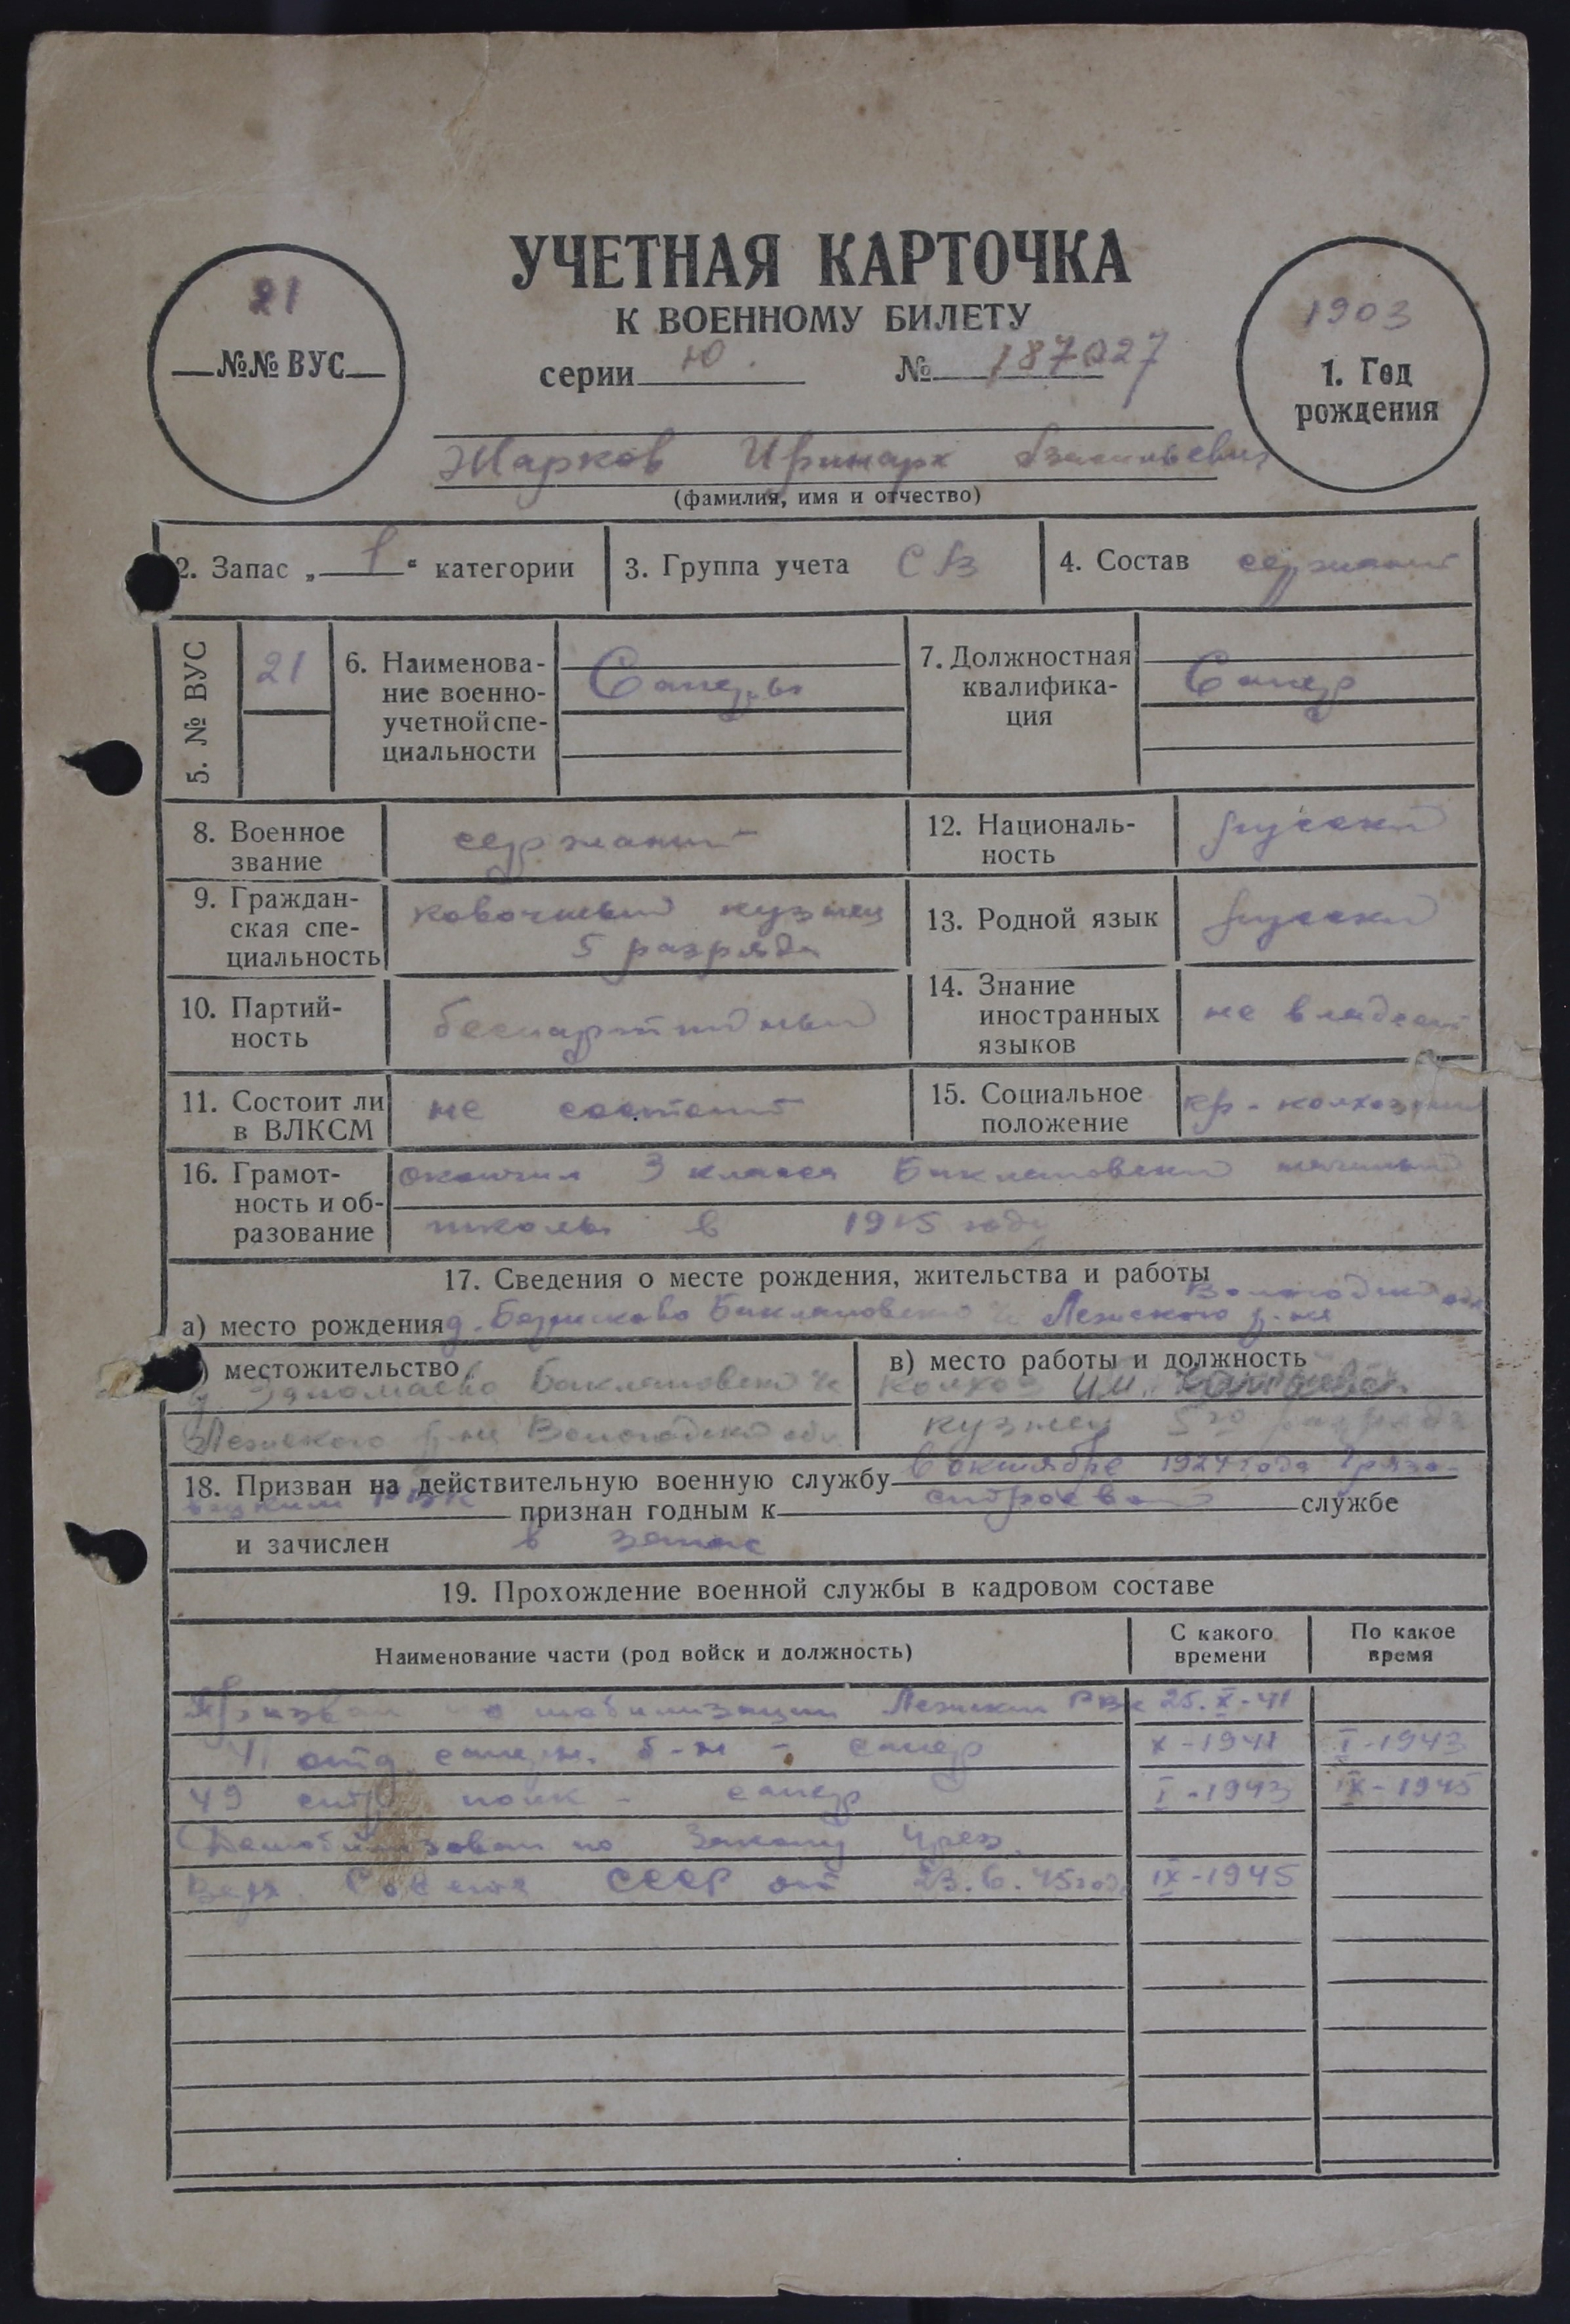 УЧЕТНАЯ КАРТОЧКА
К ВОЕННОМУ БИЛЕТУ
21
№№ ВУС
серии Ю. № 187027
1903
1. Год
рождения
Жарков Иринарх Васильевич
(фамилия, имя и отчество)
2. Запас „1“ категории
3. Группа учета СВ
4. Состав сержант
5. № ВУС
21
6. Наименова-
ние военно-
учетной спе-
циальности
Саперы
7. Должностная
квалифика-
ция
Сапер
8. Военное
звание
сержант
12. Националь-
ность
русский
9. Граждан-
ская спе-
циальность
ковочный кузнец
5 разряда
13. Родной язык
русский
10. Партий-
ность
беспартийный
14. Знание
иностранных
языков
не владеет
11. Состоит ли
в ВЛКСМ
не состоит
15. Социальное
положение
кр-колхозник
16. Грамот-
ность и об-
разование
окончил 3 класса Баклановский начальный
школы в 1915 году
17. Сведения о месте рождения, жительства и работы
Вологодской обл
а) место рождения д. Баклановского Лежского р-на
) местожительство
Баклановский
Лежского р-на Вологодской обл.
в) место работы и должность
колхоз им.
кузнец 5го разряда
18. Призван на действительную военную службу в октябре 1924 года Грязо-
вецким РВК признан годным к строевой службе
и зачислен в запас
19. Прохождение военной службы в кадровом составе
Наименование части (род войск и должность)
С какого
времени
По какое
время
Призван по мобилизации Лежским РВК 25.X-41
отд. саперн. б-н - сапер X-1941 I-1943
49 стр. полк - сапер I-1943 IX-1945
Демобилизован по Закону През.
Верх. Совета СССР от 23.6.45 года IX-1945